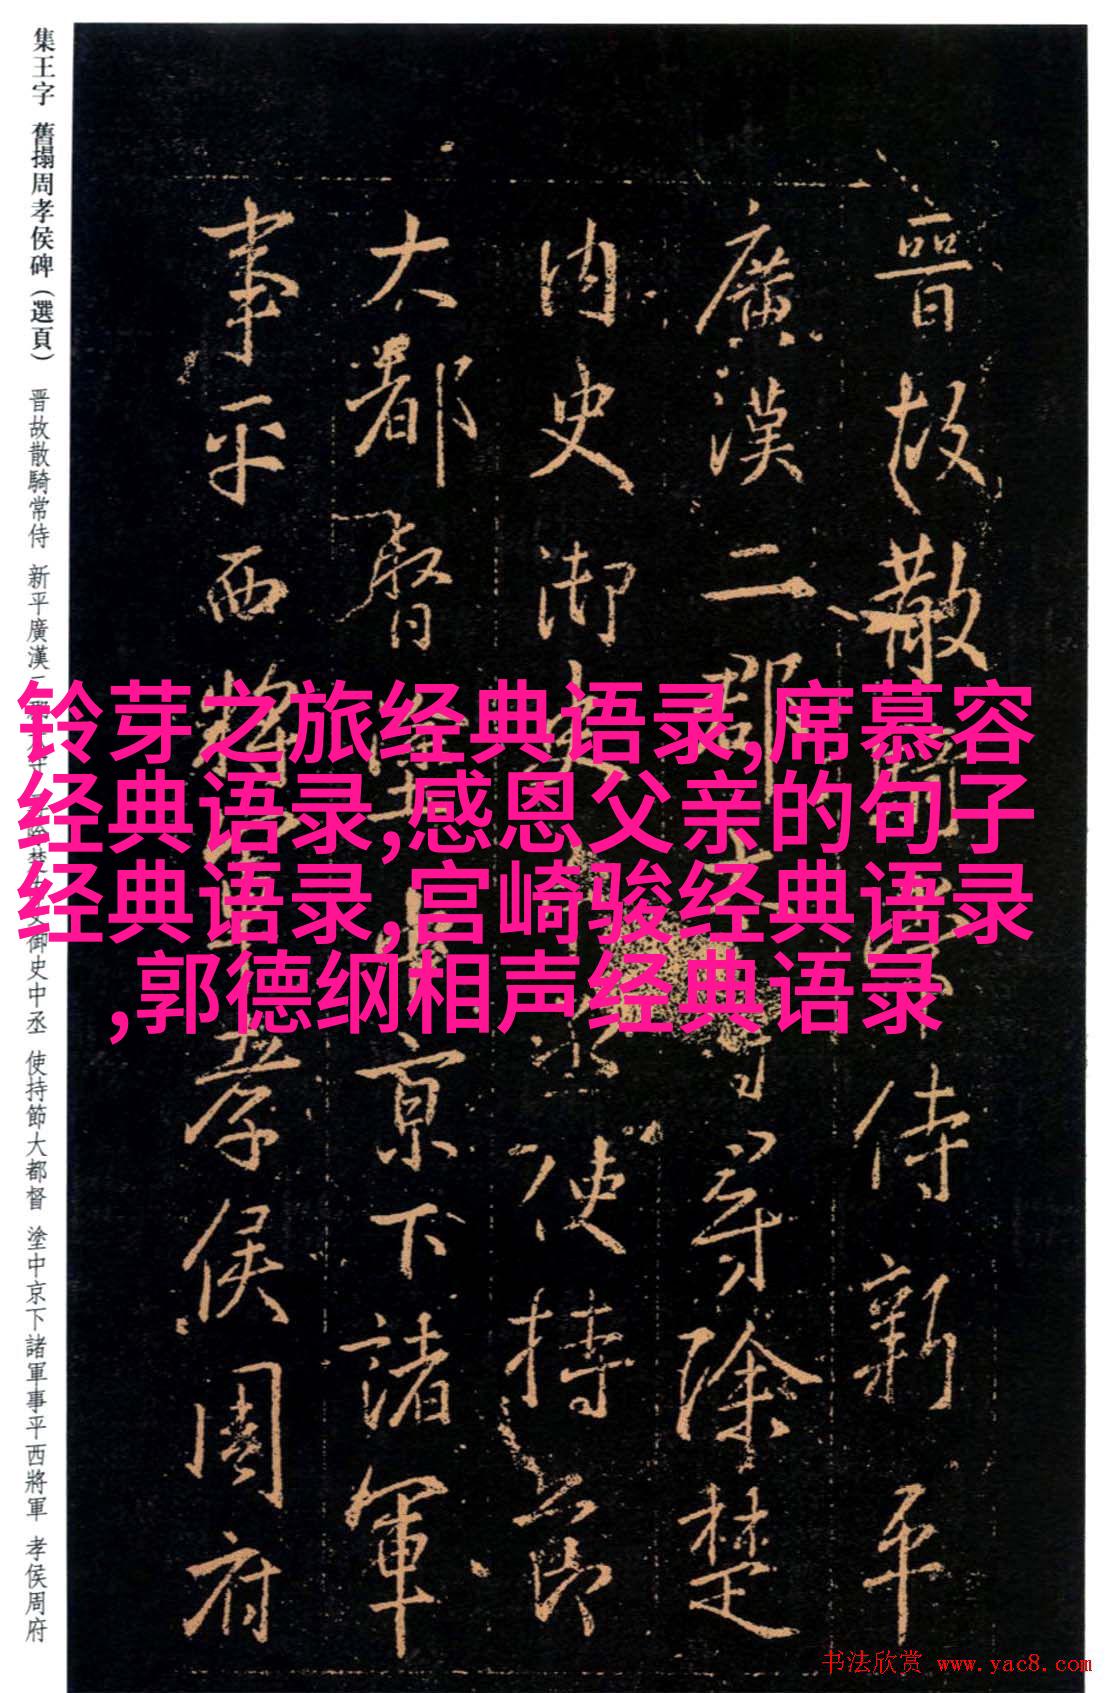 集王字 舊搨周孝侯碑（選頁） 晋故散騎常侍 新平廣漢二郡 御史中丞 使持節大都督 塗中京下諸軍事平西將軍 孝侯周府
晉故散 侍新平
廣漢二郡 尋除楚
內史御史 使持節
大都督 京下諸軍
事平西將 孝侯周府
铃芽之旅经典语录,席慕容
经典语录,感恩父亲的句子
经典语录,宫崎骏经典语录
,郭德纲相声经典语录
书法欣赏 www.yac8.com